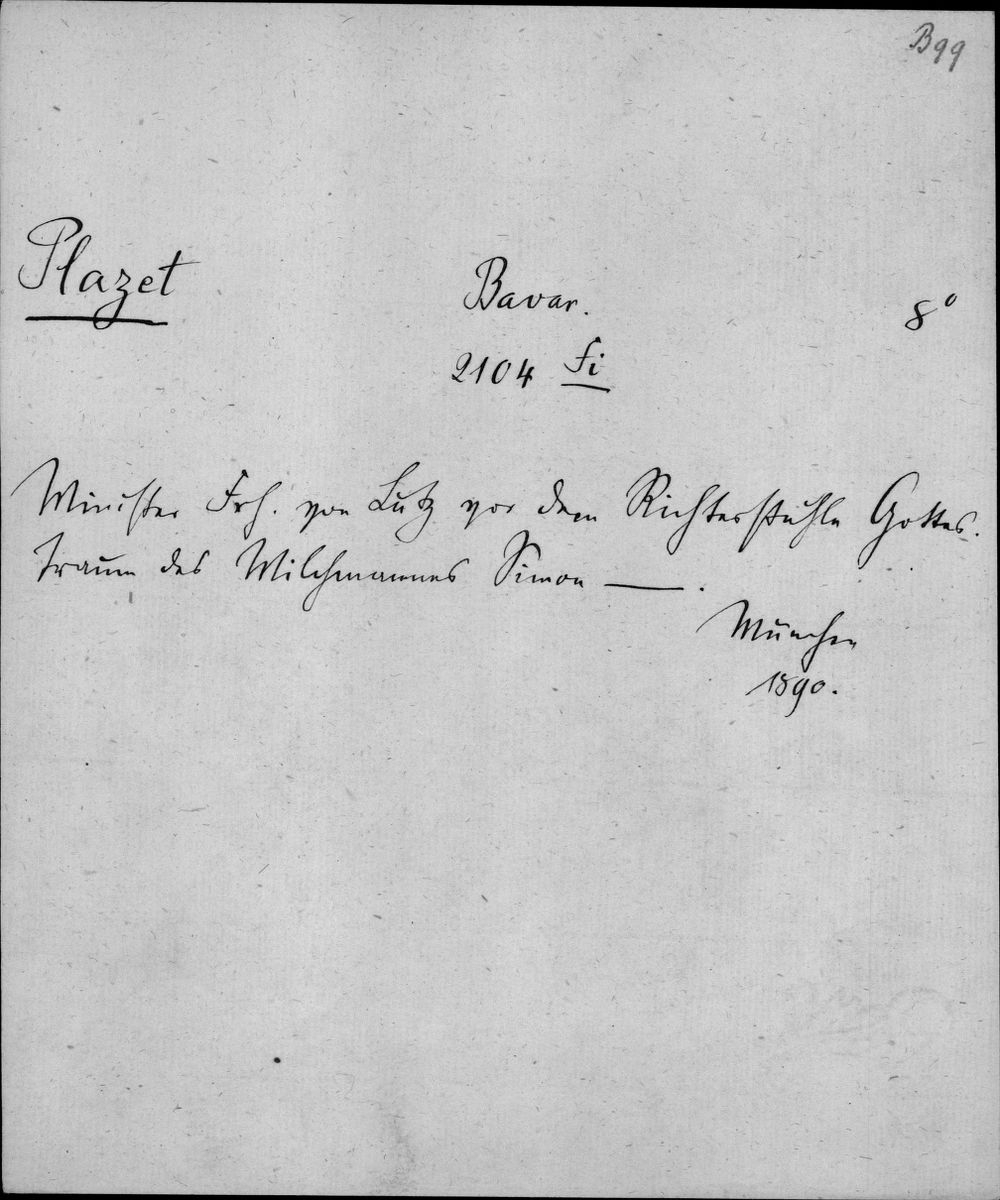 B99
Plazet
Bavar.
8°
2104 fi
Minister Frh. von Lutz vor dem Richterstuhle Gottes.
Traum des Milchmannes Simon ——.
München
1890.